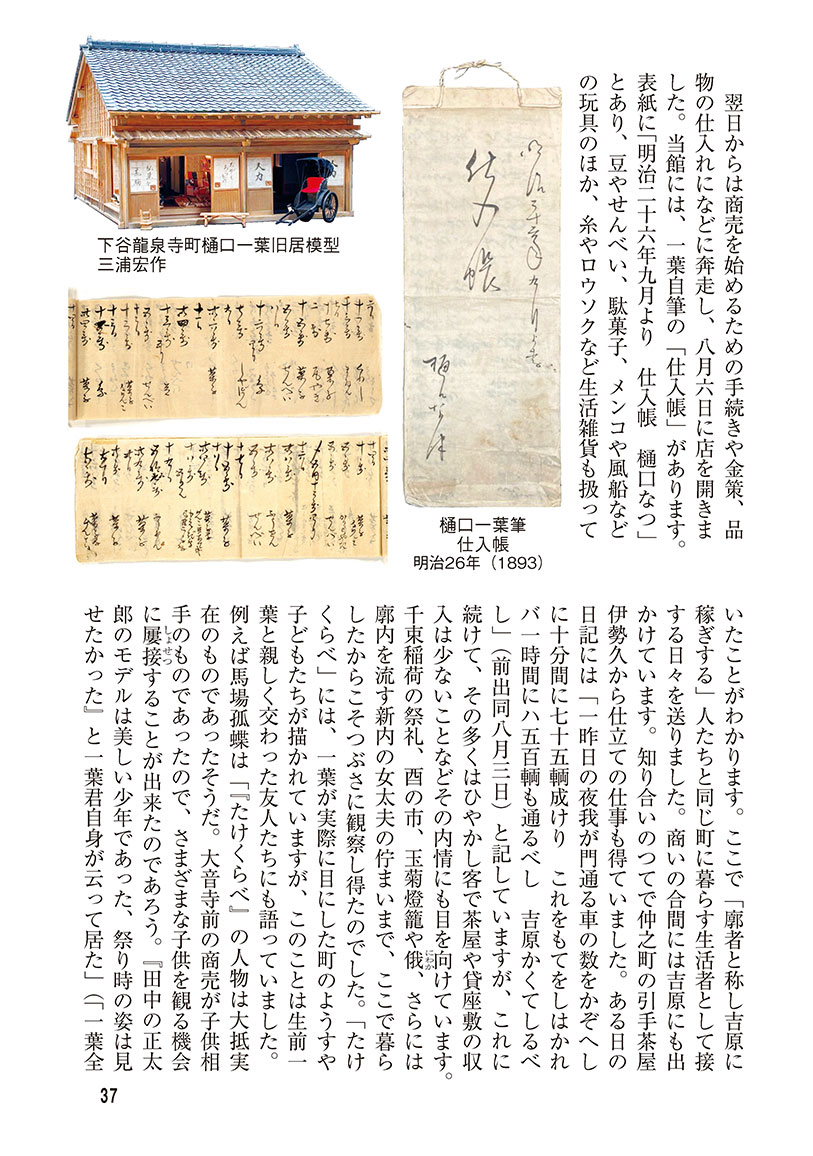 翌日からは商売を始めるための手続きや金策、品
物の仕入れになどに奔走し、八月六日に店を開きま
した。当館には、一葉自筆の「仕入帳」があります。
表紙に「明治二十六年九月より　仕入帳　樋口なつ」
とあり、豆やせんべい、駄菓子、メンコや風船など
の玩具のほか、糸やロウソクなど生活雑貨も扱って
仕入帳
樋口一葉筆
仕入帳
明治26年（1893）
人力
下谷龍泉寺町樋口一葉旧居模型
三浦宏作
いたことがわかります。ここで「廓者と称し吉原に
稼ぎする」人たちと同じ町に暮らす生活者として接
する日々を送りました。商いの合間には吉原にも出
かけています。知り合いのつてで仲之町の引手茶屋
伊勢久から仕立ての仕事も得ていました。ある日の
日記には「一昨日の夜我が門通る車の数をかぞへし
に十分間に七十五輌成けり　これをもてをしはかれ
バ一時間にハ五百輌も通るべし　吉原かくてしるべ
し」（前出同八月三日）と記していますが、これに
続けて、その多くはひやかし客で茶屋や貸座敷の収
入は少ないことなどその内情にも目を向けています。
千束稲荷の祭礼、酉の市、玉菊燈籠や俄、さらには
にわか
廓内を流す新内の女太夫の佇まいまで、ここで暮ら
したからこそつぶさに観察し得たのでした。「たけ
くらべ」には、一葉が実際に目にした町のようすや
子どもたちが描かれていますが、このことは生前一
葉と親しく交わった友人たちにも語っていました。
例えば馬場孤蝶は「『たけくらべ』の人物は大抵実
在のものであったそうだ。大音寺前の商売が子供相
手のものであったので、さまざまな子供を観る機会
に屡接することが出来たのであろう。『田中の正太
しょせつ
郎のモデルは美しい少年であった、祭り時の姿は見
せたかった』と一葉君自身が云って居た」（「一葉全
37